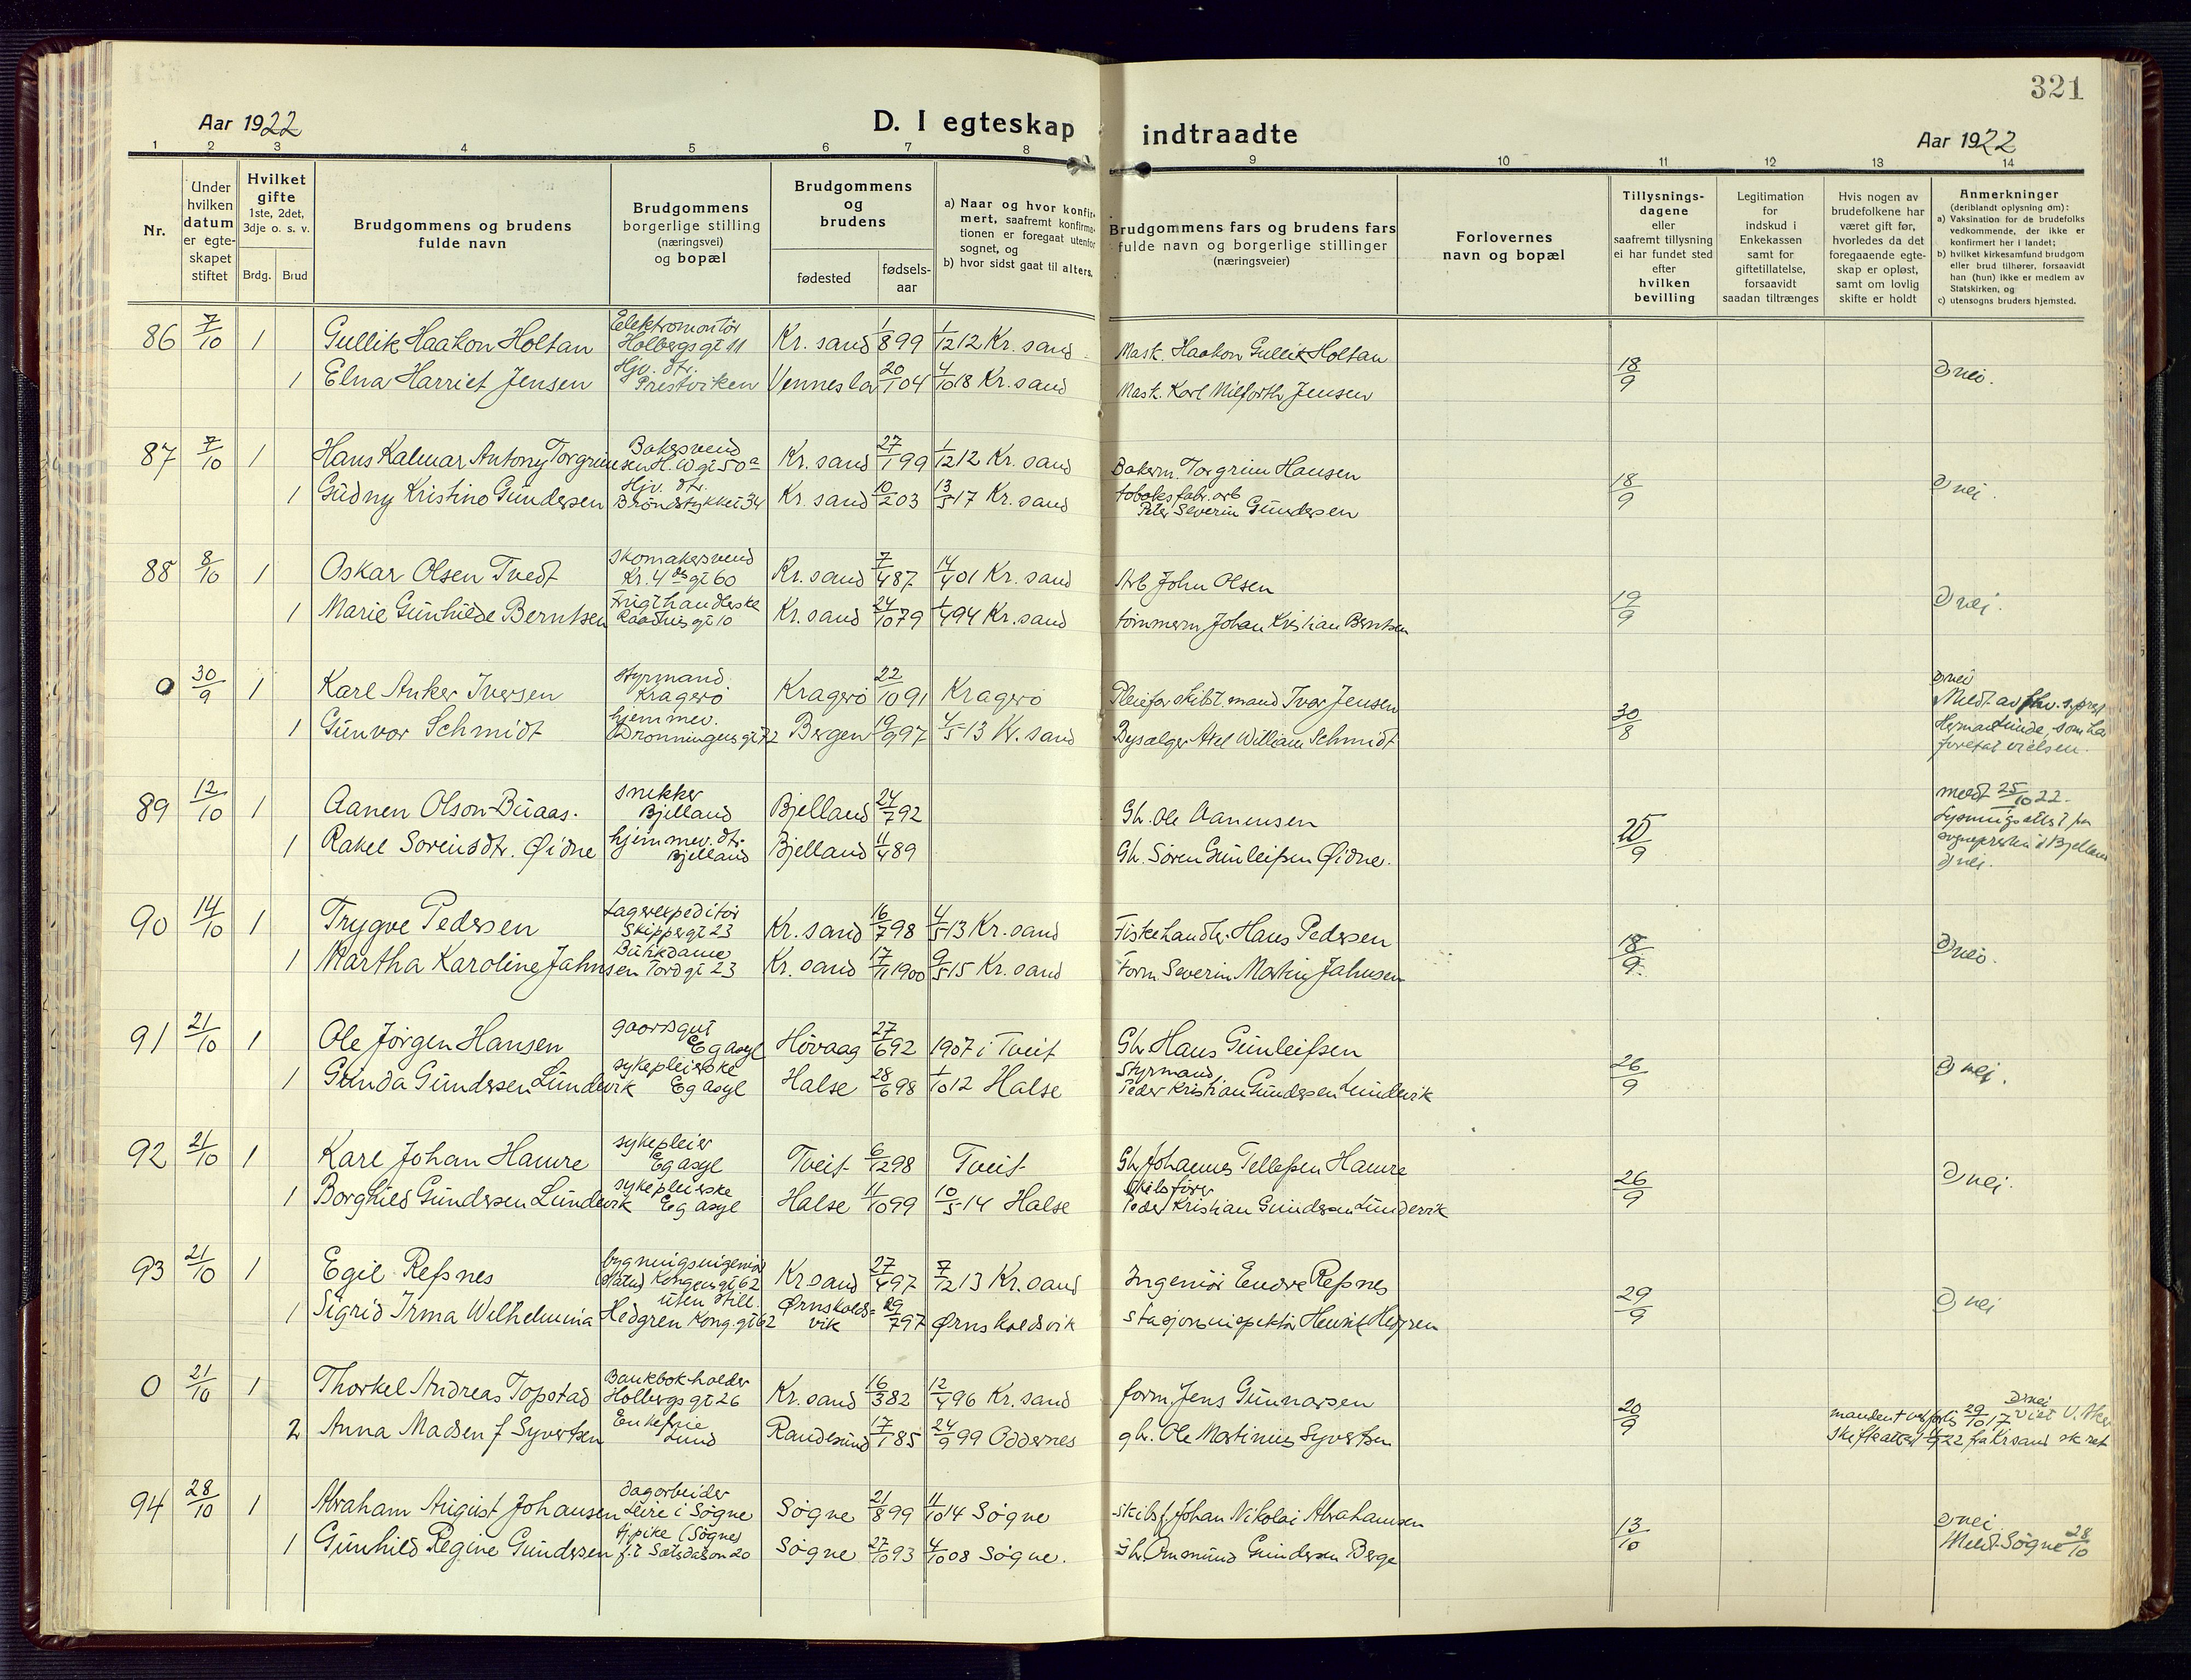 321
Aar 1922
D. I egteskap indtraadte
Aar 1922
1 2 3 4 5 6 7 8 9 10 11 12 13 14
Nr.
Under hvilken datum er egteskapet stiftet
Hvilket gifte 1ste, 2det, 3dje o. s. v.
Brdg. Brud
Brudgommens og brudens fulde navn
Brudgommens borgerlige stilling (næringsvei) og bopæl
Brudgommens og brudens
fødested fødsels-aar
a) Naar og hvor konfirmert, saafremt konfirmationen er foregaat utenfor sognet, og
b) hvor sidst gaat til alters.
Brudgommens fars og brudens fars fulde navn og borgerlige stillinger (næringsveier)
Forlovernes navn og bopæl
Tillysnings-dagene eller saafremt tillysning ei har fundet sted efter hvilken bevilling
Legitimation for indskud i Enkekassen samt for giftetillatelse, forsaavidt saadan tiltrænges
Hvis nogen av brudefolkene har været gift før, hvorledes da det foregaaende egteskap er opløst, samt om lovlig skifte er holdt
Anmerkninger (deriblandt oplysning om):
a) Vaksination for de brudefolks vedkommende, der ikke er konfirmert her i landet;
b) hvilket kirkesamfund brudgom eller brud tilhører, forsaavidt han (hun) ikke er medlem av Statskirken, og
c) utensogns bruders hjemsted.
86 7/10 1 Gullik Haakon Holtan Elektromontør Holbergsgt 11 Kr. sand 1/8 99 1/12 12 Kr. sand Mask. Haakon Gullik Holtan 18/9 d) nei.
1 Elna Harriet Jensen Hjv. dtr. Prestviken Vennesla 20/1 04 4/10 18 Kr. sand Mask. Karl Milforth Jensen
87 7/10 1 Hans Kalmar Antony Torgrimsen Bakersvend H. W gt 50 a Kr. sand 27/1 99 1/12 12 Kr. sand Bakerm. Torgrim Hansen 18/9 d) nei.
1 Gudny Kristine Gundersen Hjv. dtr. Brøndstykket 34 Kr. sand 10/2 03 13/5 17 Kr. sand tobaksfabr. arb Peter Severin Gundersen
88 8/10 1 Oskar Olsen Tvedt Skomakersvend Kr. 4des gt 60 Kr. sand 7/4 87 14/4 01 Kr. sand Arb John Olsen 19/9 d) nei.
1 Marie Gunhilde Berntsen Frugthandlerske Raadhusgt 10 Kr. sand 24/10 79 1/4 94 Kr. sand tømmerm Johan Kristian Berntsen
0 30/9 1 Karl Anker Iversen styrmand Kragerø Kragerø 22/10 91 Kragerø Pleiefar skibst.mand Ivar Jensen 30/8 d) nei Meldt av Herman Lunde, som har foretat vielsen.
1 Gunvor Schmidt hjemmev. Dronningensgt 72 Bergen 19/9 97 4/5 13 Kr. sand Bysælger Axel William Schmidt
89 12/10 1 Aanen Olson Buaas. snekker Bjelland Bjelland 24/7 92 Gbr. Ole Aanensen 25/9 meldt 25/10 22. Lysningsattest fra sognepresten i Bjelland d) nei.
1 Rakel Sorensdtr. Øidne hjemmev. dtr. Bjelland Bjelland 11/4 89 Gbr. Søren Gunleifsen Øidne.
90 14/10 1 Trygve Pedersen Lagerexpeditør Skippergt 23 Kr. sand 16/7 98 4/5 13 Kr. sand Fiskehandler Hans Pedersen 18/9 d) nei.
1 Martha Karoline Jahnsen Butikdame Tordgt 23 Kr. sand 17/11 1900 9/5 15 Kr. sand Form Severin Martin Jahnsen
91 21/10 1 Ole Jørgen Hansen gaardsgut Eg asyl Høvaag 27/6 92 1907 i Tveit Gbr Hans Gunleifsen 26/9 d) nei.
1 Gunda Gundersen Lundevik sykepleierske Eg asyl Halse 28/6 98 1/10 12 Halse Styrmand Peder Kristian Gundersen Lundevik
92 21/10 1 Karl Johan Hamre sykepleier Eg asyl Tveit 6/12 98 Tveit Gbr Johannes Tellefsen Hamre 26/9 d) nei.
1 Borghild Gundersen Lundevik sykepleierske Eg asyl Halse 11/10 99 10/5 14 Halse Skibsfører Peder Kristian Gundersen Lundevik
93 21/10 1 Egil Refsnes bygningsingeniør Kongensgt 62 Kr sand 27/4 97 7/12 13 Kr. sand Ingeniør Endre Refsnes 29/9 d) nei
1 Sigrid Irma Wilhelmina Hedgren uten still. Kong. gt 62 Ørnskoldsvik 29/7 97 Ørnskoldsvik Stasjonsinspektør Henrik Hedgren
0 21/10 1 Thorkel Andreas Topstad Bankbokholder Holbergsgt 26 Kr. sand 16/3 82 12/4 96 Kr. sand form. Jens Gunnarsen 20/9 d) nei
2 Anna Madsen f Syvertsen Enkefrue Lund Randesund 17/1 85 24/9 99 Oddernes gbr. Ole Martinius Syvertsen manden 29/10 17 Skifteattest 22 fra Kr sand sk ret
94 28/10 1 Abraham August Johansen dagarbeider Leire i Søgne Søgne 21/8 99 11/10 14 Søgne Skibsf. Johan Nikolai Abrahamsen 13/10 d) nei Meldt Søgne 28/10
1 Gunhild Regine Gundersen tj. pike (Søgne) Søgne 27/10 93 4/10 08 Søgne. Gbr. Omund Gundersen Berge